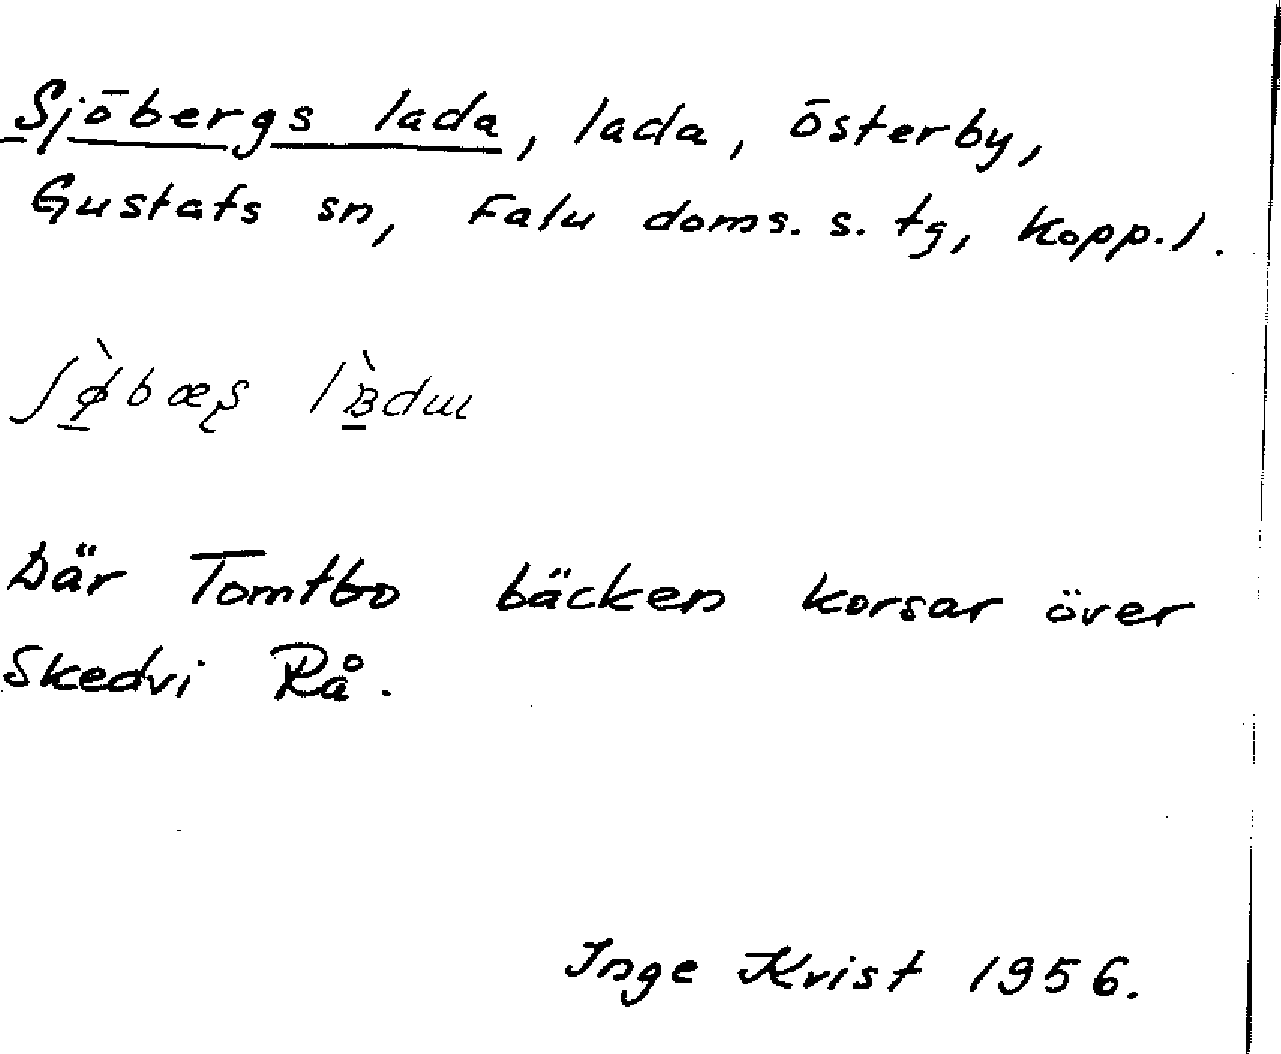 Sjöbergs lada, lada, Österby,
Gustafs sn, Falu doms. s. tg, Kopp. l.
Där Tomtbo bäcken korsar över
Skedvi Rå.
Inge Krist 1956.